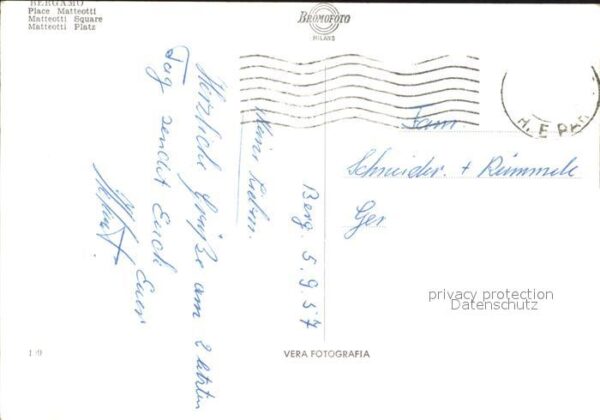 BERGAMO
Place Matteotti
Matteotti Square
Matteotti Platz
BROMOFOTO
MILANO
Berg. 5.9.57
Meine Lieben.
Herzliche Grüße am 2 letzten
Tag sendet Euch Euer
Helmut
Fam.
Schneider. + Rümmele
Ger
privacy protection
Datenschutz
VERA FOTOGRAFIA